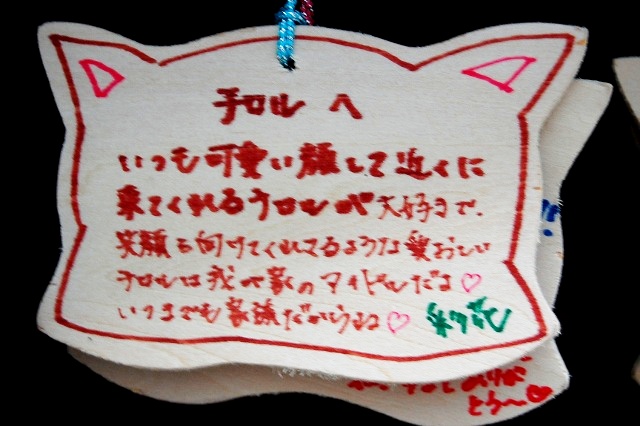 チロル へ
いつも可愛い顔して近くに
来てくれるチロルが大好きで、
笑顔を向けてくれてるような愛おしい
チロルは我が家のアイドルだよ♡
いつまでも家族だからね♡
ありが
とう〜♡